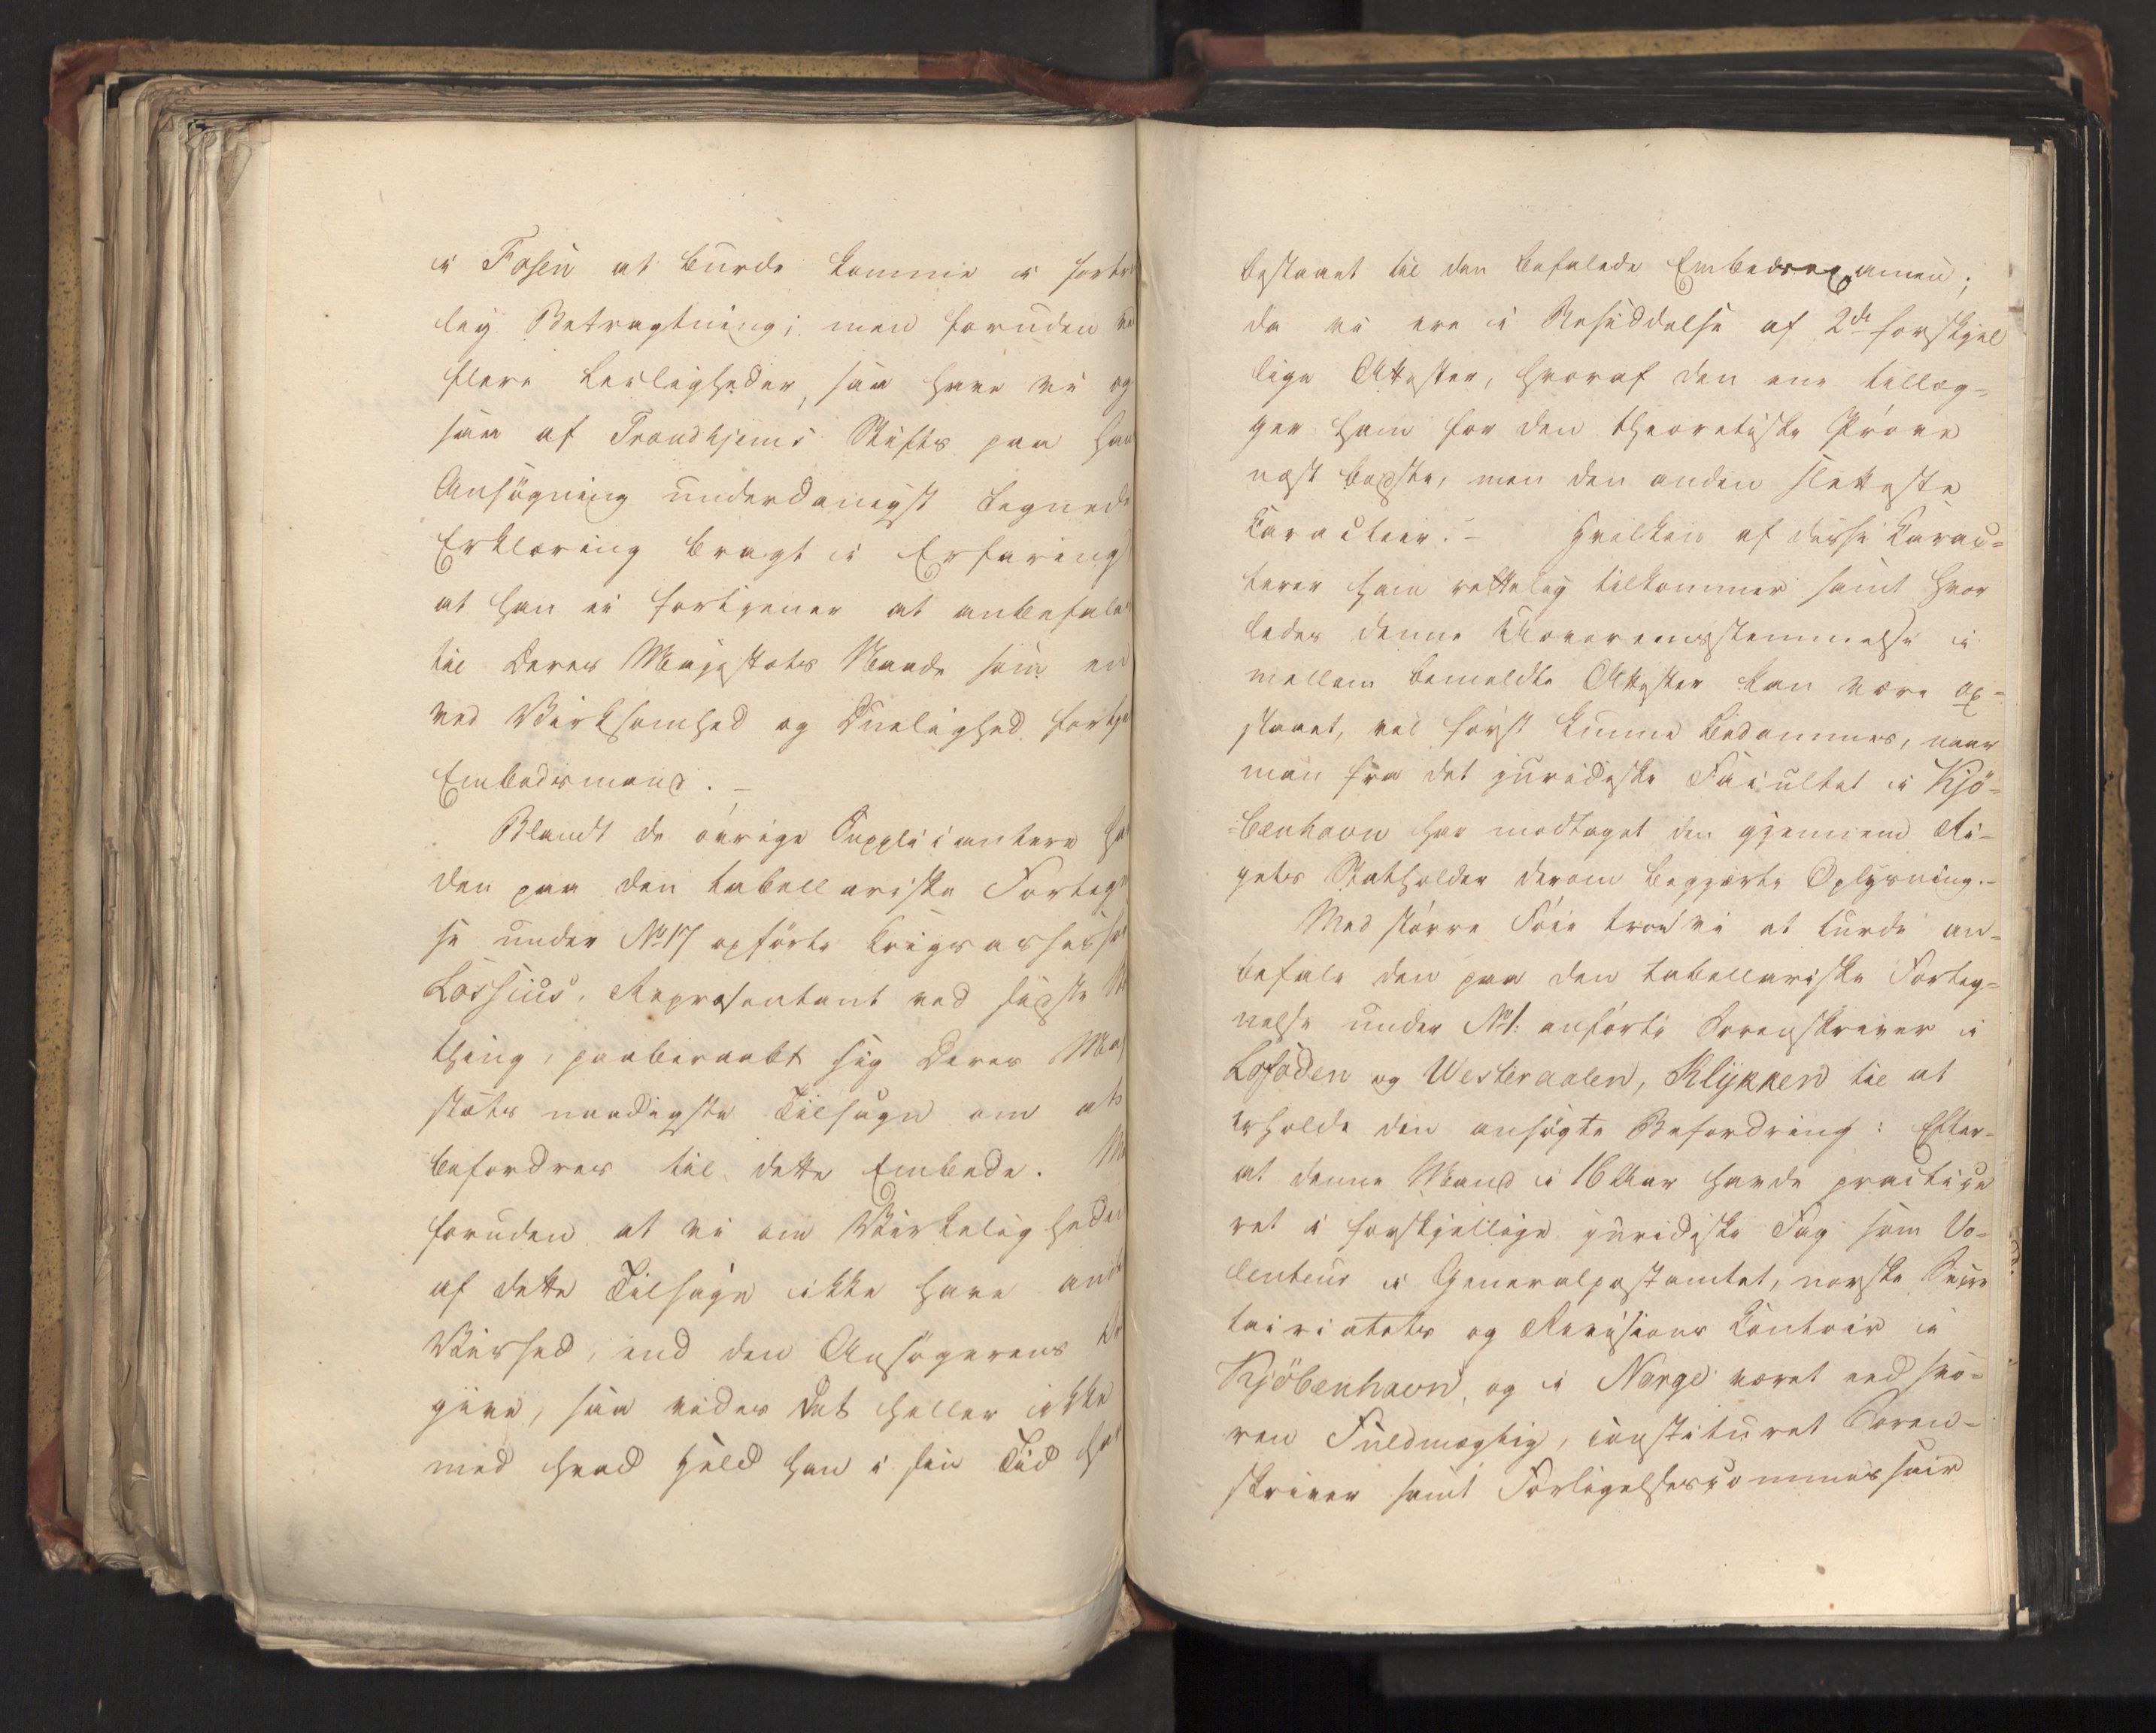 i Fosen at burde komme i fortr
lig Betragtning; men foruden ved
flere Leiligheder, saa have vi og
saa af Trondhjems Stifts paa han
Ansøgning underdanigst tegnede
Erklæring bragt i Erfaring
at han ei fortjener at anbefales
til Deres Majestæts Naade som en
ved Virksomhed og Duelighed fortje
Embedsmand. –
Blandt de øvrige Supplicantere ha
den paa den tabellariske Forteg
se under No 17 opførte Krigsassessor
Lossius, Repræsentant ved sidste
thing, paaberaabt sig Deres Maj
stæts naadigste Tilsagn om at
befordres til dette Embede. Me
foruden at vi om Virkeligheden
af dette Tilsagn ikke have andet
Vished, end den Ansøgerens
give, saa vides det heller ikke
med hvad Held han i sin Tid ha
bestaaet til den befalede Embedsexamen;
da vi ere i Besiddelse af 2de forskjel
lige Attester, hvoraf den ene tillæg=
ger ham for den theoretiske Prøve
næst bedste, men den anden sletteste
Caracteer. – Hvilken af disse Carac=
terer ham rettelig tilkommer samt hvor
ledes denne Uoverensstemmelse i
mellem bemeldte Attester kan være op=
staaet, vil først kunne bedømmes, naar
man fra det juridiske Facultet i Kjö=
=benhavn har modtaget den gjennem Ri=
gets Statholder derom begjærte Oplysning. –
Med større Föie troe vi at turde an=
befale den paa den tabellariske Forteg=
nelse under No 1. anførte Sorenskriver i
Lofoden og Westeraalen, Klykken til at
erholde den ansøgte Befordring: Efter=
at denne Mand i 16 Aar havde practice
ret i forskjellige juridiske Fag som Vo=
lenteur i Generalpostamtet, norske Secre
tairiatets og Revisions Contoir i
Kjöbenhavn, og i Norge været edsvo=
ren Fuldmægtig, constitueret Soren=
skriver samt Forligelsescommissair